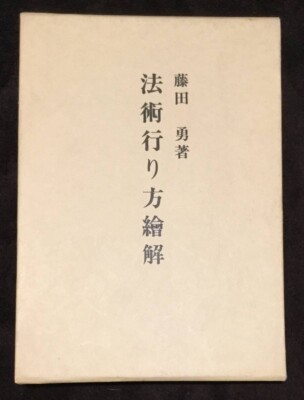 藤田 勇著
法術行り方繪解